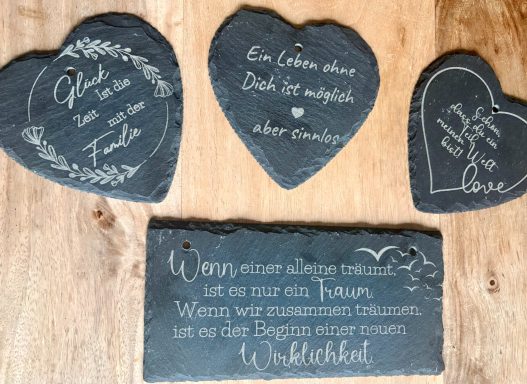 Glück
Ist die
Zeit mit der
Familie
Ein Leben ohne
Dich ist möglich
aber sinnlos
Schön,
dass du ein
Teil
meiner Welt
bist!
love
Wenn einer alleine träumt,
ist es nur ein Traum.
Wenn wir zusammen träumen,
ist es der Beginn einer neuen
Wirklichkeit.